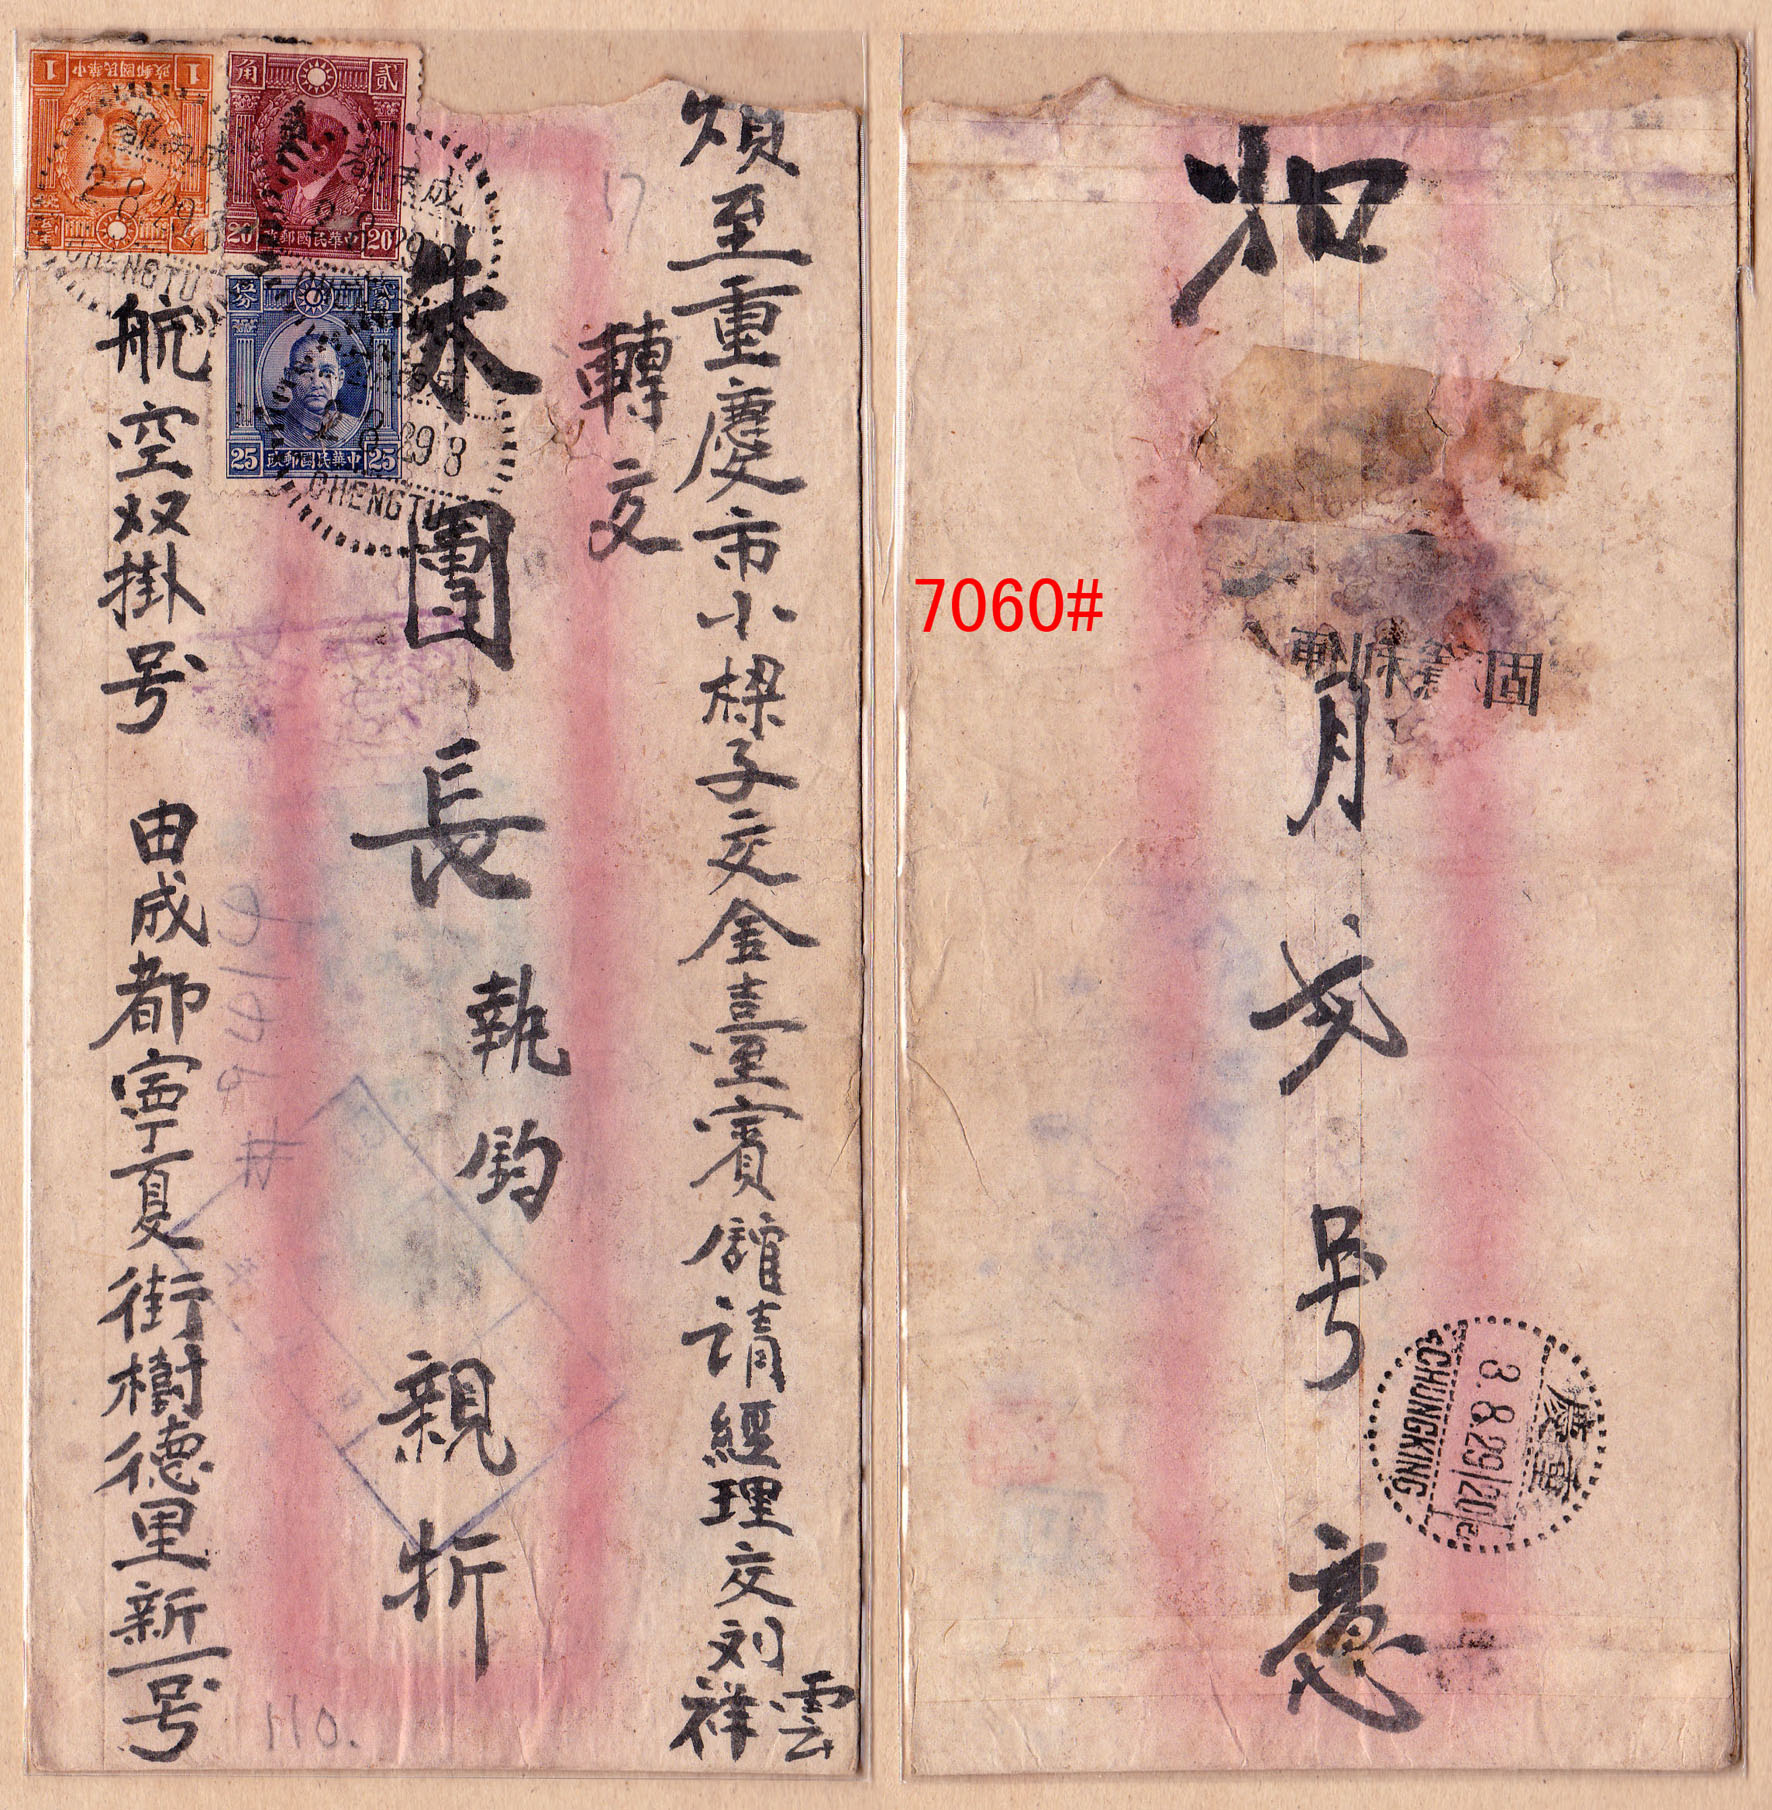 煩至重慶市小樑子交金臺賓館請經理交刘雲祥
轉交
朱團長執鈞親折
航空双掛号
由成都寧夏街樹德里新一号
1 政郵國民華中 1
角 貳
20 政郵國民華中 20
伍分 貳角
25 政郵國民華中 25
CHENGTU
CHENGTU
29 8
17
110.
7060#
固
月
号
意
慶重
3.8.29/20
CHUNGKING